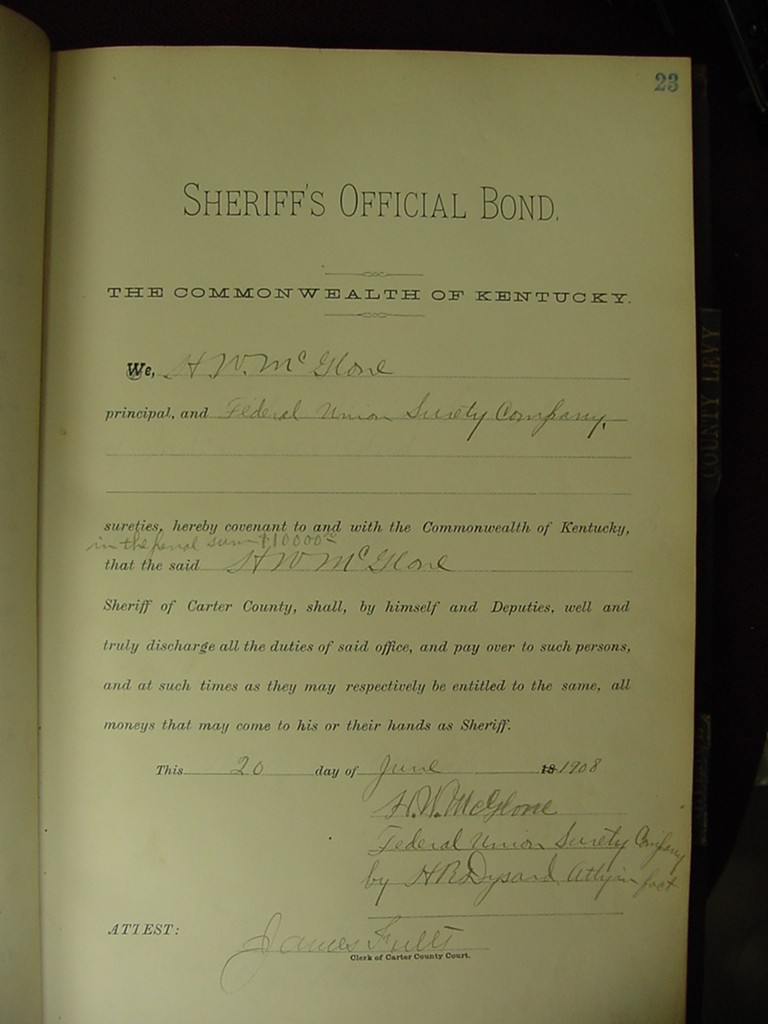 23
SHERIFF'S OFFICIAL BOND.
THE COMMONWEALTH OF KENTUCKY.
We, H W. McGlone
principal, and Federal Union Surety Company,
sureties, hereby covenant to and with the Commonwealth of Kentucky,
in the penal sum $10000
that the said H W McGlone
Sheriff of Carter County, shall, by himself and Deputies, well and
truly discharge all the duties of said office, and pay over to such persons,
and at such times as they may respectively be entitled to the same, all
moneys that may come to his or their hands as Sheriff.
This 20 day of June 18 1908
H. W. McGlone
Federal Union Surety Company
by H R Dysard Atty in fact
ATTEST: James Fults
Clerk of Carter County Court.
COUNTY LEVY